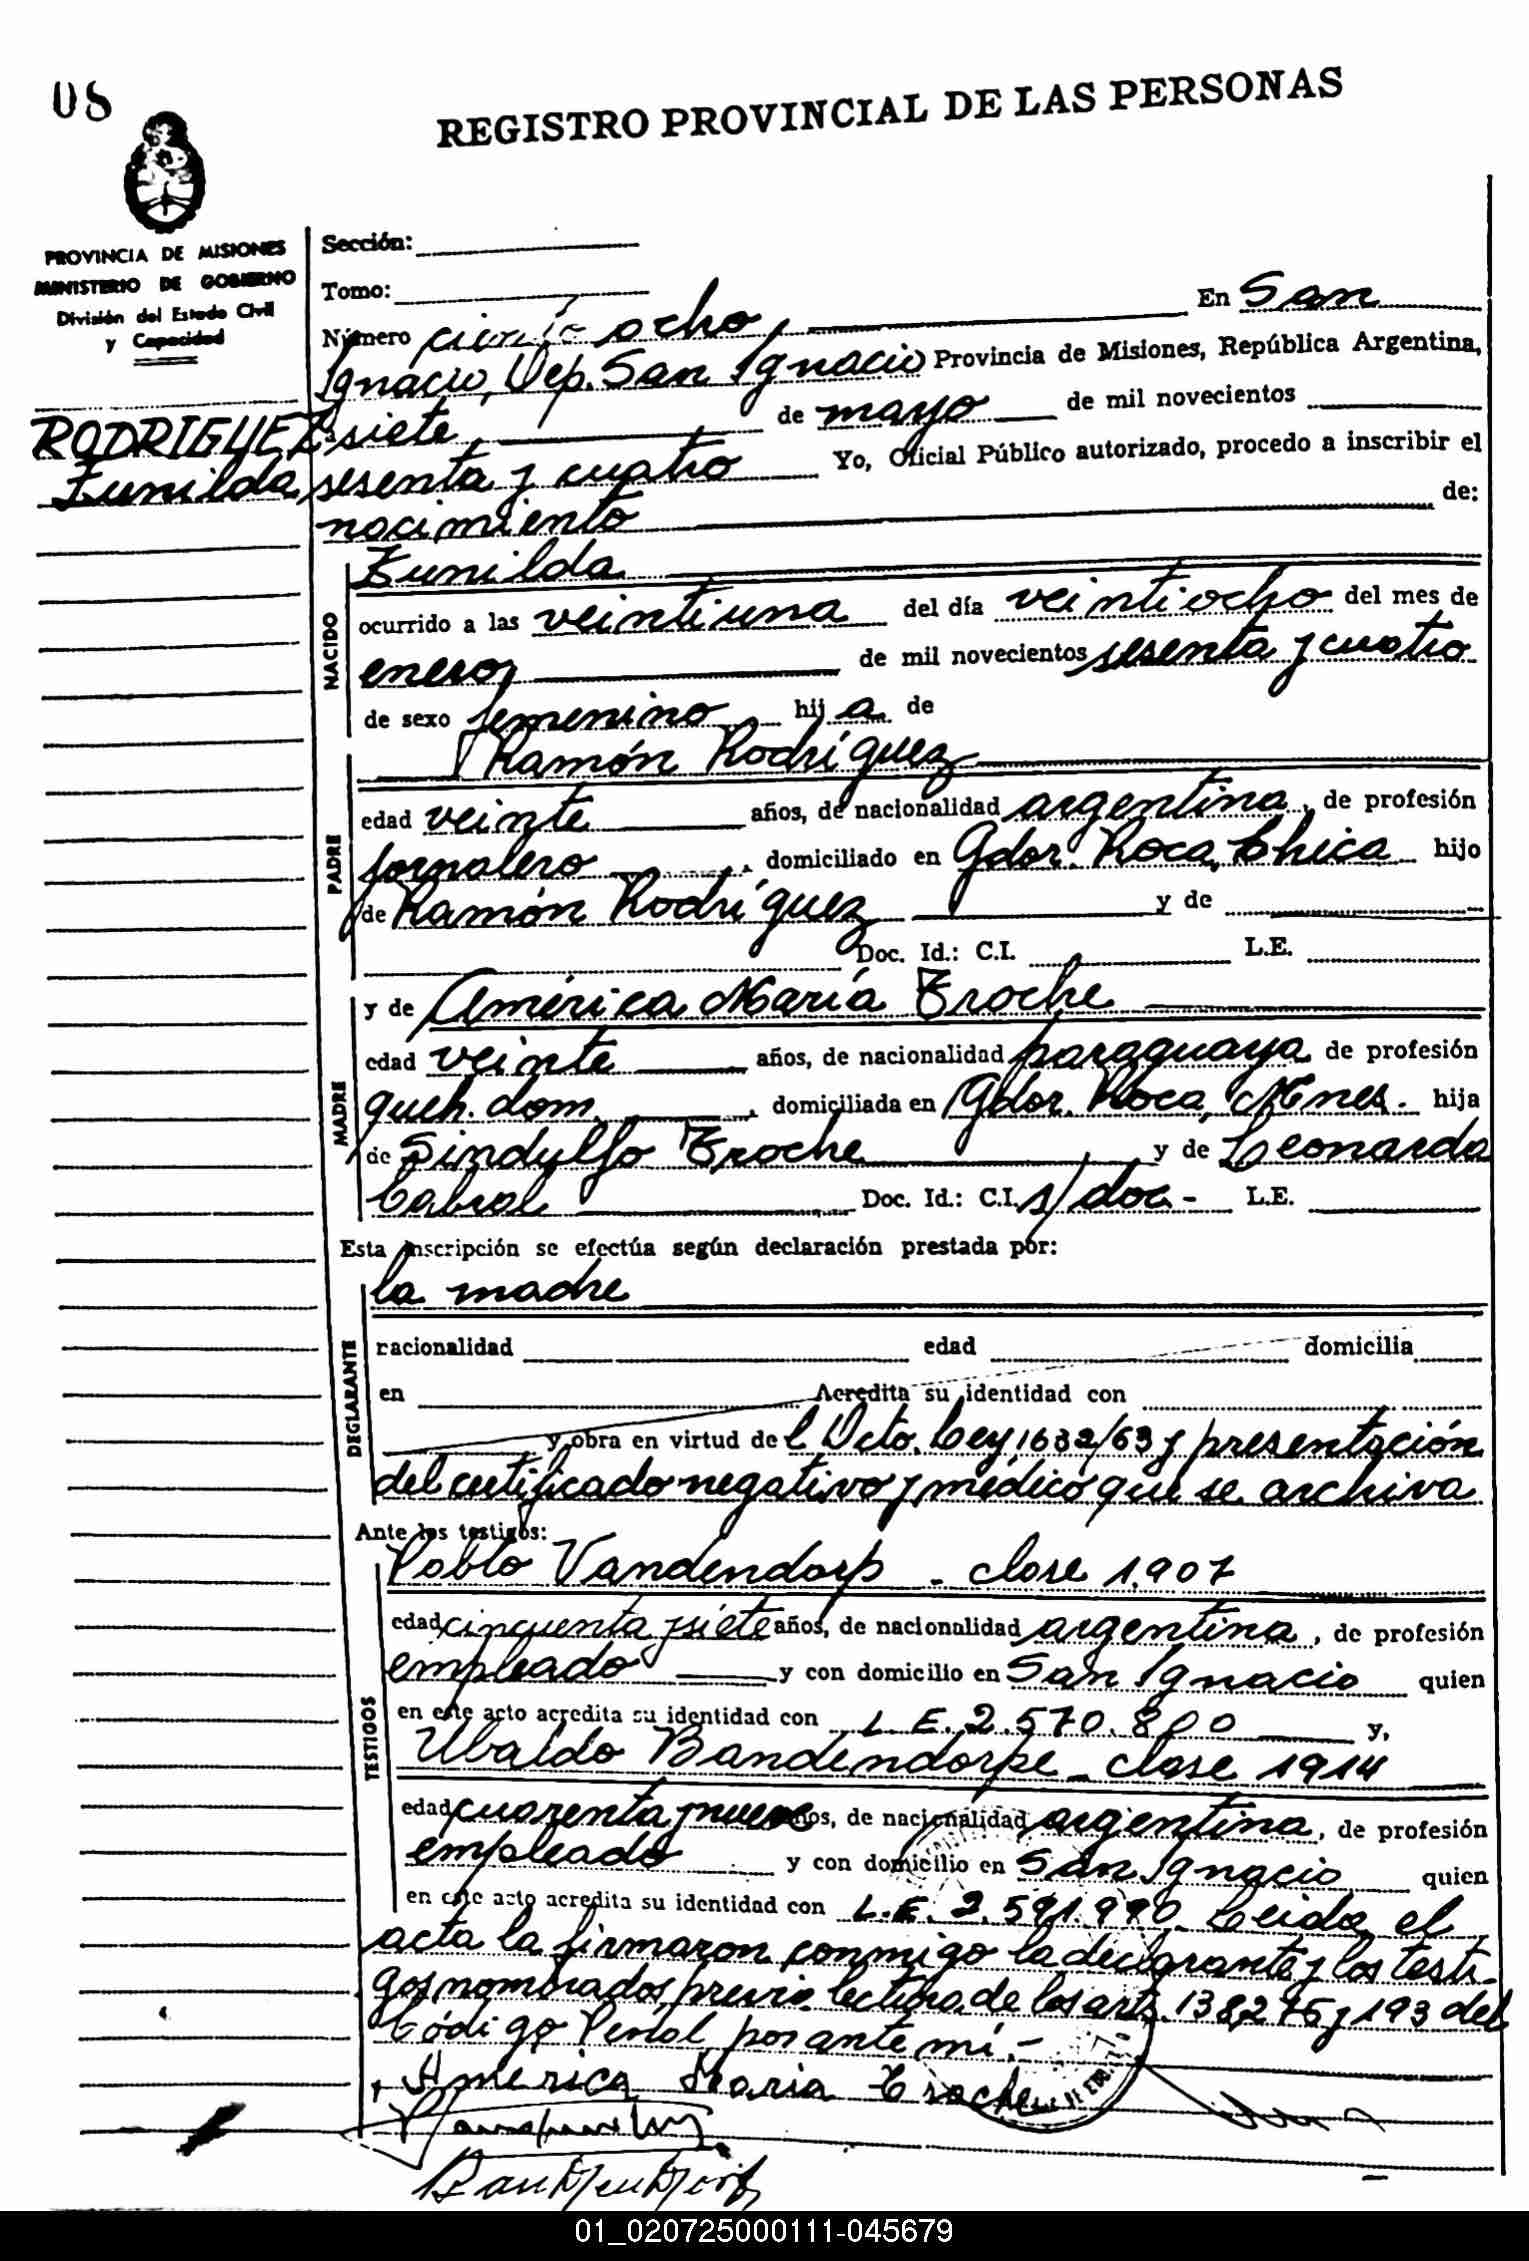 08
REGISTRO PROVINCIAL DE LAS PERSONAS
PROVINCIA DE MISIONES
MINISTERIO DE GOBIERNO
División del Estado Civil
y Capacidad
RODRIGUEZ
Zunilda
Sección:
Tomo:
Número ciento ocho, En San
Ignacio, Dep. San Ignacio Provincia de Misiones, República Argentina,
a siete, de mayo de mil novecientos
sesenta y cuatro Yo, Oficial Público autorizado, procedo a inscribir el
nacimiento de:
NACIDO
Zunilda
ocurrido a las veintiuna del día veintiocho del mes de
enero, de mil novecientos sesenta y cuatro
de sexo femenino hija de
PADRE
Ramón Rodríguez
edad veinte años, de nacionalidad argentina, de profesión
jornalero, domiciliado en Gdor. Roca, Chica hijo
de Ramón Rodríguez y de
Doc. Id.: C.I. L.E.
MADRE
y de América María Troche
edad veinte años, de nacionalidad paraguaya de profesión
queh. dom., domiciliada en Gdor. Roca, Mnes. hija
de Sindulfo Troche y de Leonarda
Cabral Doc. Id.: C.I. s/doc.- L.E.
Esta inscripción se efectúa según declaración prestada por:
DECLARANTE
la madre
nacionalidad edad domicilia
en Acredita su identidad con
y obra en virtud del Dcto. Ley 1632/63 y presentación
del certificado negativo y médico que se archiva
Ante los testigos:
TESTIGOS
Pablo Vandendorp - clase 1.907
edad cincuenta y siete años, de nacionalidad argentina, de profesión
empleado y con domicilio en San Ignacio quien
en este acto acredita su identidad con L.E. 2.570.800 y,
Ubaldo Bandendorpe - clase 1914
edad cuarenta y nueve años, de nacionalidad argentina, de profesión
empleado y con domicilio en San Ignacio quien
en este acto acredita su identidad con L.E. 2.591.990. Leida el
acta la firmaron conmigo la declarante y los testi-
gos nombrados, previa lectura de los arts. 138, 275 y 193 del
Código Penal por ante mí.-
América Maria Troche
01_020725000111-045679